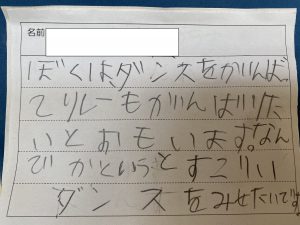 名前
ぼくは、ダンスをがんば
てりレーもがんばりた
いとおもいます。なん
でかというとすごいい
ダンスをみせたいです